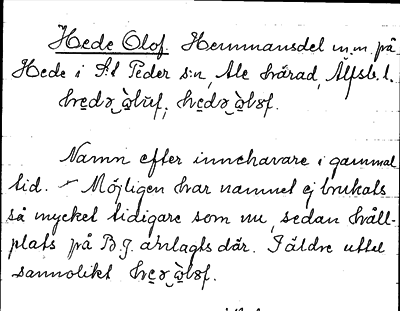 Hede Olof. Hemmansdel m.m. på
Hede i S:t Peder s:n, Ale härad, Älfsb. l.
hedə òluf, hedə òlof.
Namn efter innehavare i gammal
tid. – Möjligen har namnet ej brukats
så mycket tidigare som nu, sedan håll-
plats på B.J. anlagts där. I äldre uttal
sannolikt heə òlof.